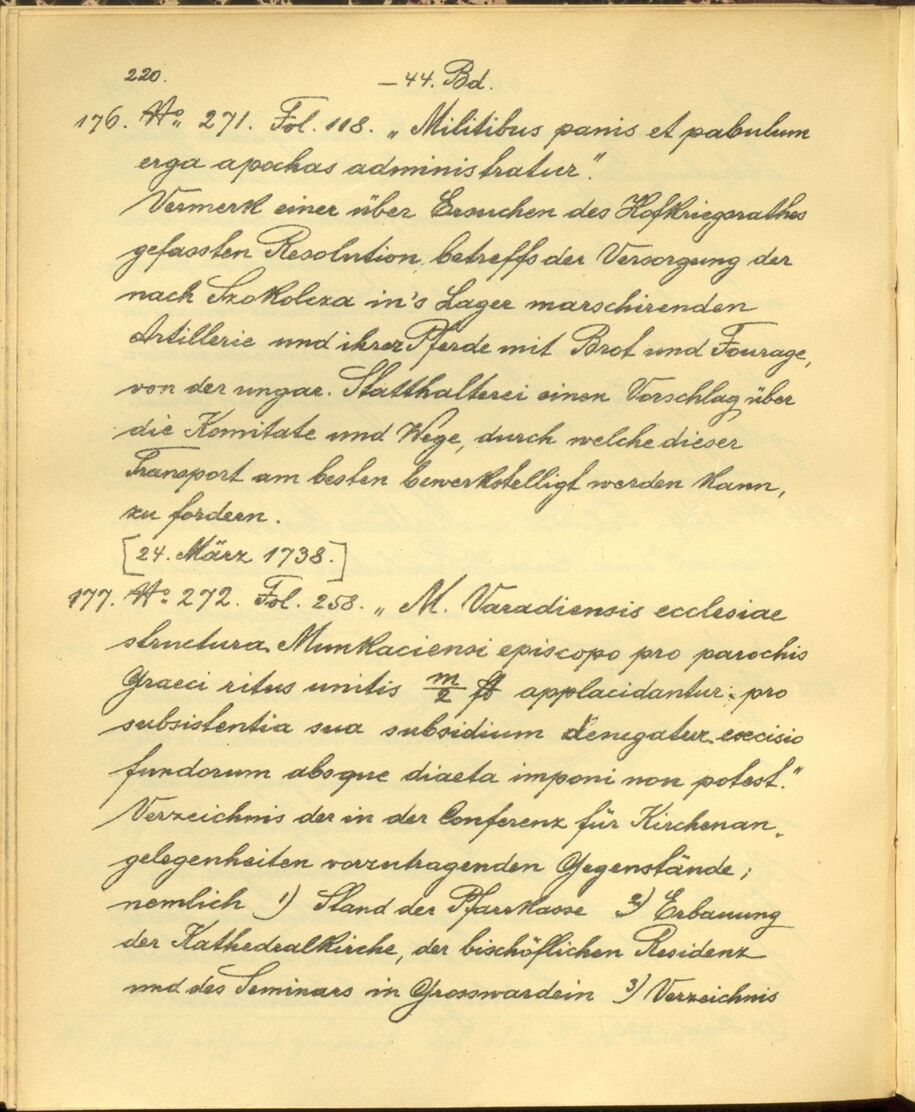 220.
— 44. Bd.
176. No. 271. Fol. 118. „Militibus panis et pabulum
erga apochas administratur".
Vermerk einer über Ersuchen des Hofkriegsrathes
gefassten Resolution, betreffs der Versorgung der
nach Szokolcza in's Lager marschirenden
Artillerie und ihrer Pferde mit Brot und Fourage,
von der ungar. Statthalterei einen Vorschlag über
die Komitate und Wege, durch welche dieser
Transport am besten bewerkstelligt werden kann,
zu fordern.
[24. März 1738.]
177. No. 272. Fol. 258. „M. Varadiensis ecclesiae
structura Munkaciensi episcopo pro parochis
Graeci ritus unitis m/2 fl applacidantur; pro
subsistentia sua subsidium denegatur excisio
fundorum absque diaeta imponi non potest."
Verzeichnis der in der Conferenz für Kirchenan-
gelegenheiten vorzutragenden Gegenstände;
nemlich 1) Stand der Pfarrkasse 2) Erbauung
der Kathedralkirche, der bischöflichen Residenz
und des Seminars in Grosswardein 3) Verzeichnis